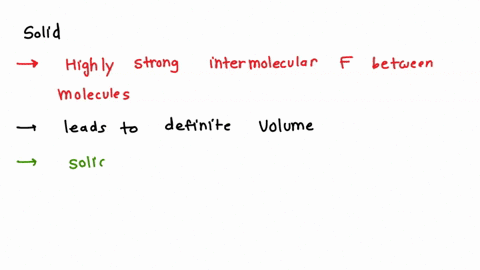 Solid
→ Highly strong intermolecular F between
molecules
→ leads to definite volume
→ solic